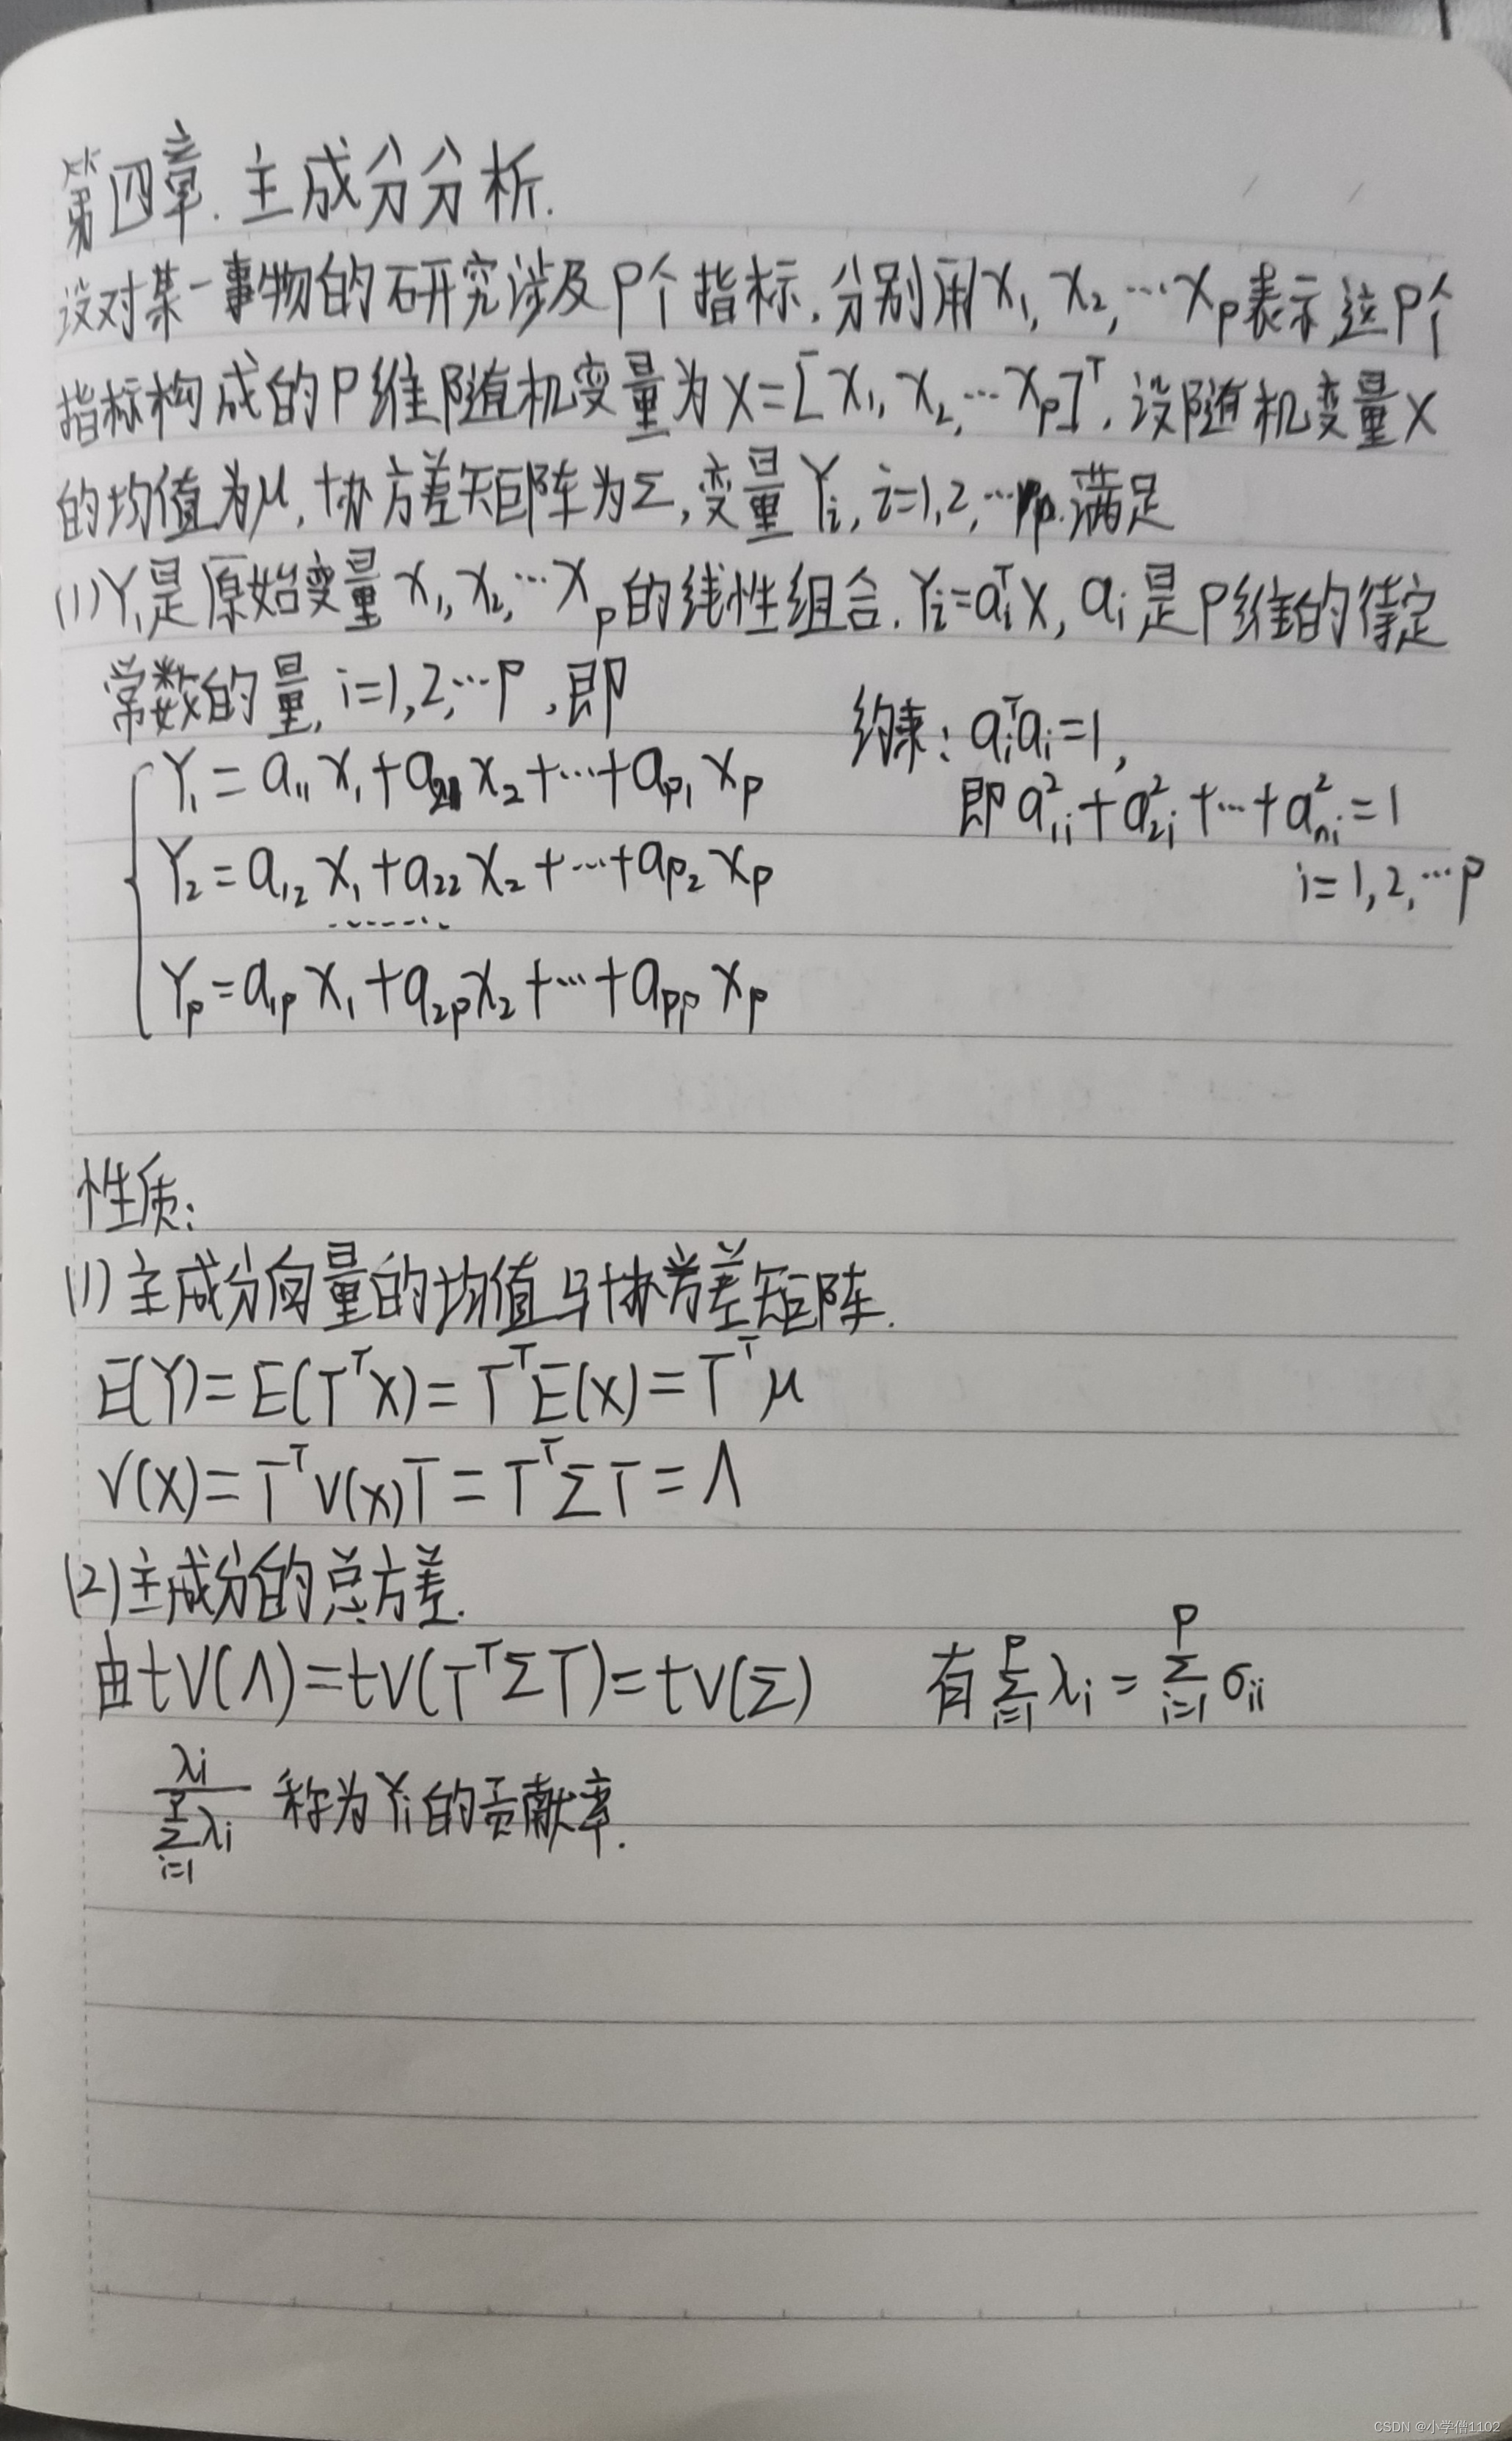 第四章. 主成分分析.
设对某一事物的研究涉及P个指标.分别用X₁, X₂, ⋯Xₚ表示,这P个
指标构成的P维随机变量为X=[X₁, X₂, ⋯Xₚ]ᵀ.设随机变量X
的均值为μ,协方差矩阵为Σ,变量Yᵢ, i=1,2,⋯p.满足
(1)Yᵢ是原始变量X₁, X₂, ⋯Xₚ的线性组合.Yᵢ=aᵢᵀX, aᵢ是P维的待定
常数的量, i=1,2,⋯P,即
约束: aᵢᵀaᵢ=1,
即a₁ᵢ²+a₂ᵢ²+⋯+aₙᵢ²=1
i=1,2,⋯p
Y₁=a₁₁X₁+a₂₁X₂+⋯+aₚ₁Xₚ
Y₂=a₁₂X₁+a₂₂X₂+⋯+aₚ₂Xₚ
------
Yₚ=a₁ₚX₁+a₂ₚX₂+⋯+aₚₚXₚ
性质:
(1)主成分向量的均值与协方差矩阵.
E(Y)=E(TᵀX)=TᵀE(X)=Tᵀμ
V(X)=TᵀV(X)T=TᵀΣT=Λ
(2)主成分的总方差.
由tV(Λ)=tV(TᵀΣT)=tV(Σ) 有 Σᵢ₌₁ᴾ λᵢ = Σᵢ₌₁ᴾ σᵢᵢ
λᵢ / Σᵢ₌₁ᴾ λᵢ 称为Yᵢ的贡献率.
CSDN @小学僧1102